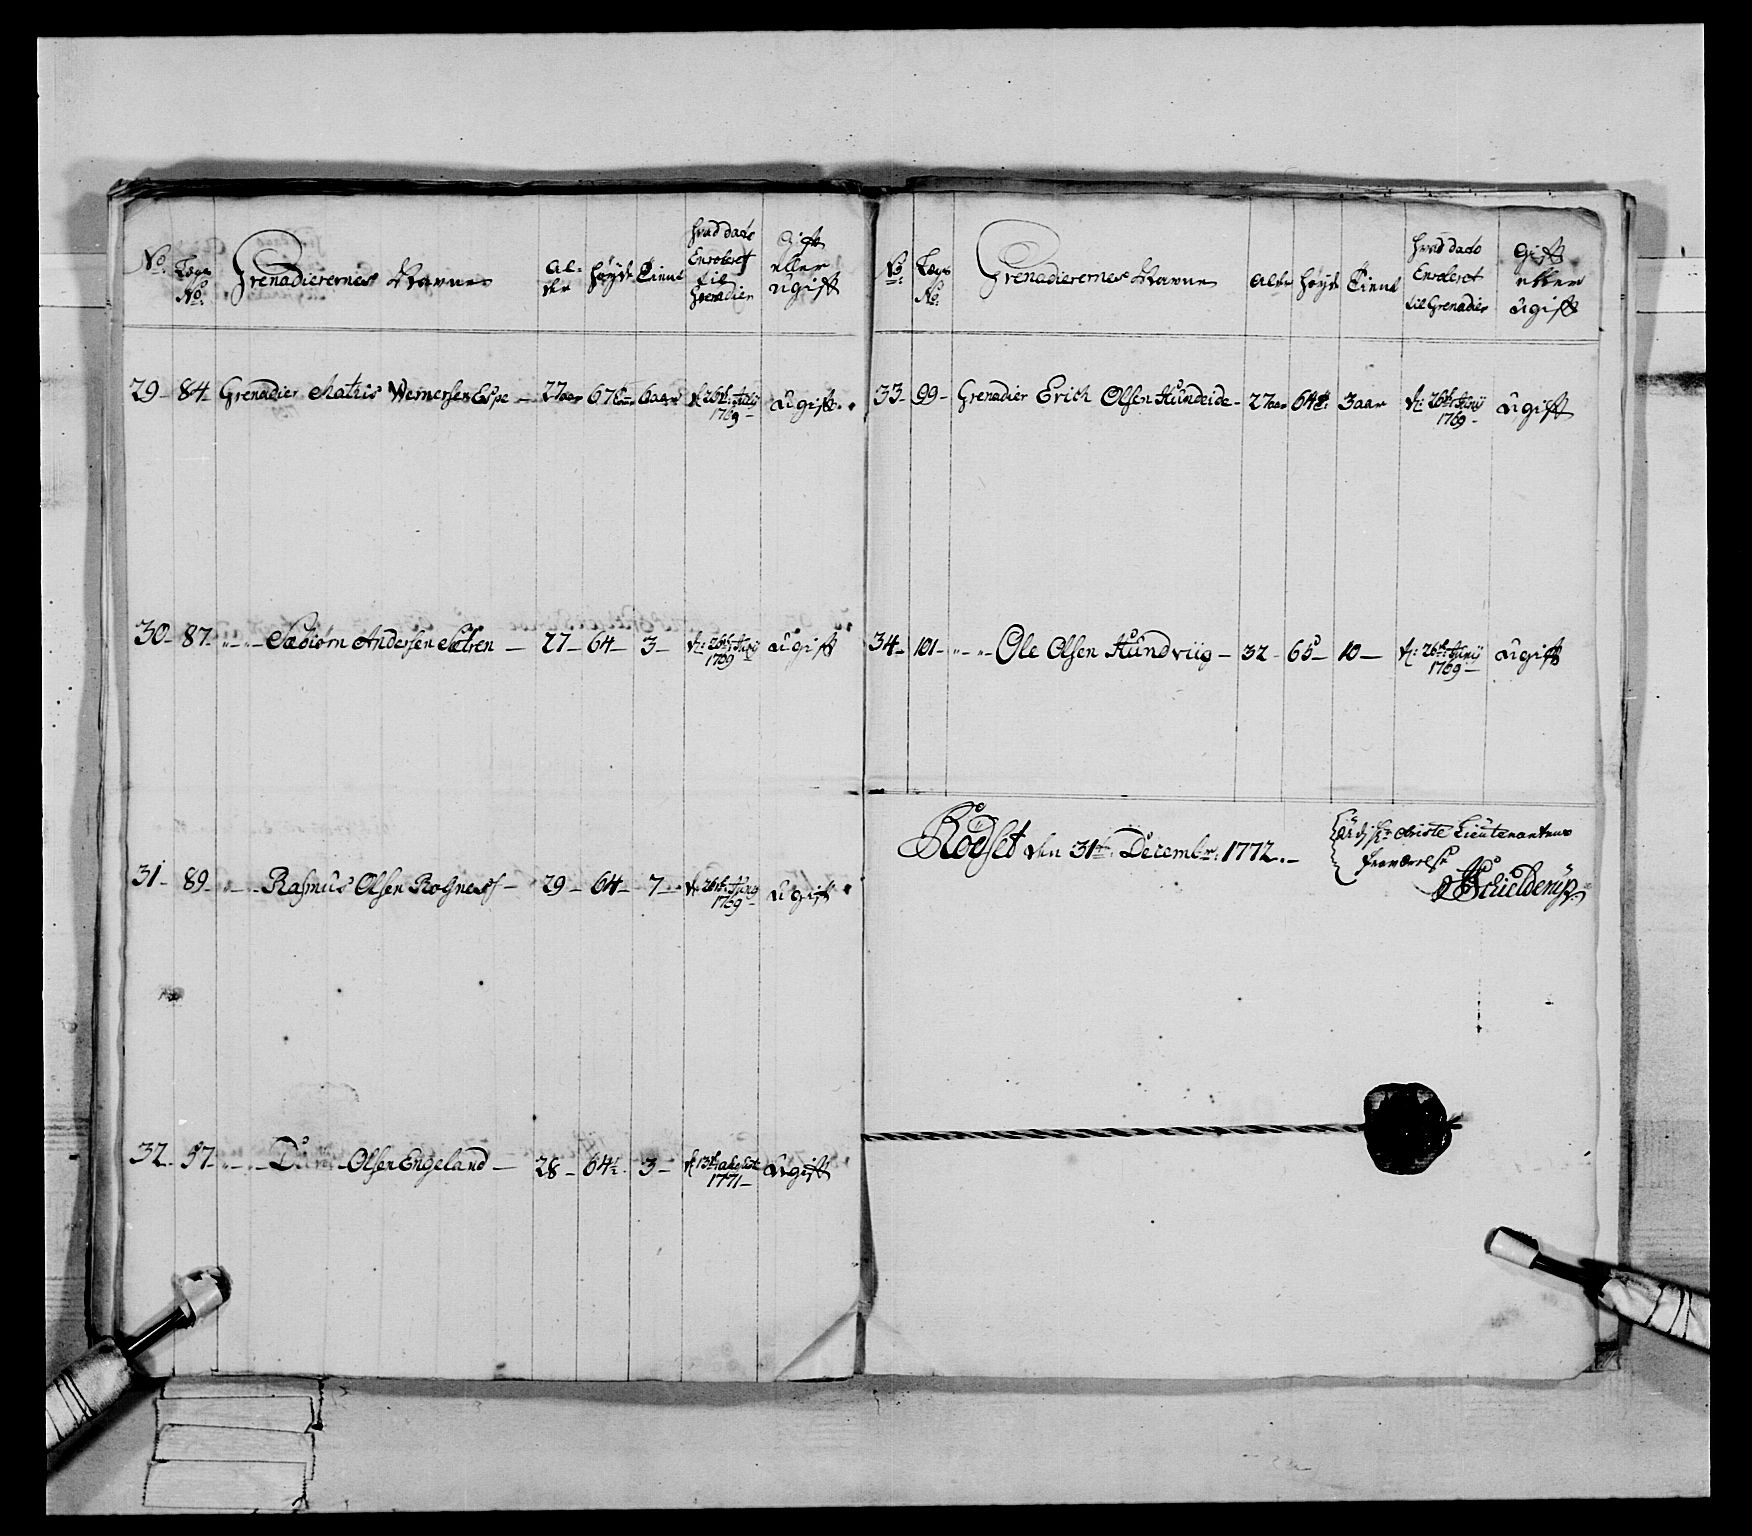 No. Lægs No. Grenadierernes Navne Alder Høyde Tient Hvad dato Enroleret til Grenadier Gift eller ugift
29 - 84 Grenadier Mathis Wernersen Espe - 27 aar 67 6 aar d 26de Junij 1769 - Ugift
30 - 87 - " - " - Sæbiørn Andersen Sætren - 27 - 64 - 3 - d: 26de Junij 1769 ugift
31 - 89 - " - Rasmus Olsen Rognes - 29 - 64 - 7 - d 26de Junij 1769 - ugift
32 - 57 - " - " - Olsen Engeland - 28 - 64½ - 3 - d 13de 1771 - Ugift
No. Lægs No. Grenadierernes Navne Alder Høyde Tient Hvad dato Enroleret til Grenadier Gift eller ugift
33 - 99 - Grenadier Erich Olsen Hundeide - 27 aar 64 3 aar d: 26de Junij 1769 - ugift
34 - 101 - " - " - Ole Olsen Hundviig - 32 - 65 - 10 - d: 26de Junij 1769 - ugift
Rödset den 31te Decembr: 1772. -
Lieutenantens
fraværelse
Schielderup